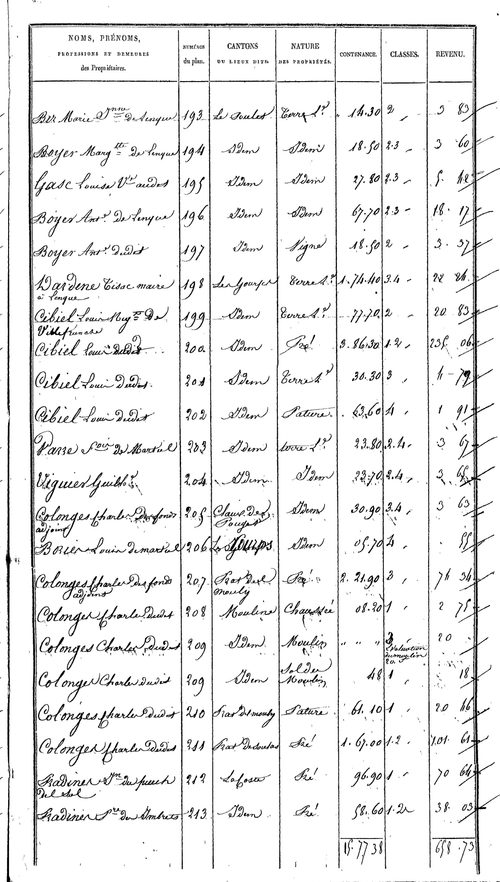 NOMS, PRÉNOMS, PROFESSIONS ET DEMEURES des Propriétaires. NUMÉROS du plan. CANTONS OU LIEUX DITS. NATURE DES PROPRIÉTÉS. CONTENANCE. CLASSES. REVENU.
Marie de Lenque 193 Le Terre Lle 14.30 2 3 83
Boyer Marg.tte de Lenque 194 Idem Idem 18.50 2.3 3 60
Gasc Louise Ve audit 195 Idem Idem 27.80 2.3 5 48
Boyer Ant.e de Lenque 196 Idem Idem 67.70 2.3 18 17
Boyer Ant.e dudit 197 Idem Vigne 18.50 2 3 37
Dardene maire 198 Terre 1.74.40 3.4 22 24
à Lenque
Cibiel Louis de 199 Idem Terre 77.70 2 20 83
Villefranche
Cibiel Louis dudit 200 Idem Pré 3.86.30 1.2 235 06
Cibiel Louis dudit 201 Idem Terre 30.30 3 4 79
Cibiel Louis dudit 202 Idem Pature 63.60 4 1 91
de Martiel 203 Idem terre 23.80 2.4 3 67
Viguier Guilh.e 204 Idem Idem 23.70 2.4 3 65
Colonges Charles des fonds 205 Idem 30.90 3.4 3 63
adjoint
Borier Louis de martiel 206 Idem 05.70 4 55
Colonges Charles des fonds 207 Prat del Pré 2.21.90 3 76 34
adjoint mouly
Colonges Charles dudit 208 Mouline Chaussée 08.20 1 2 75
Colonges Charles dudit 209 Idem Moulin " " " 3 20
Evaluation
du moulin
20
Colonges Charles dudit 209 Idem Sol du 48 1 18
Moulin
Colonges Charles dudit 210 Prat del mouly Pature 61.10 1 20 66
Colonges Charles dudit 211 Prat Pré 1.67.00 1.2 101 61
Radiner du puech 212 Lacoste Pré 96.90 1 70 64
del sol
Radiner 213 Idem Pré 58.60 1.2 38 03
15.77 38 658.73